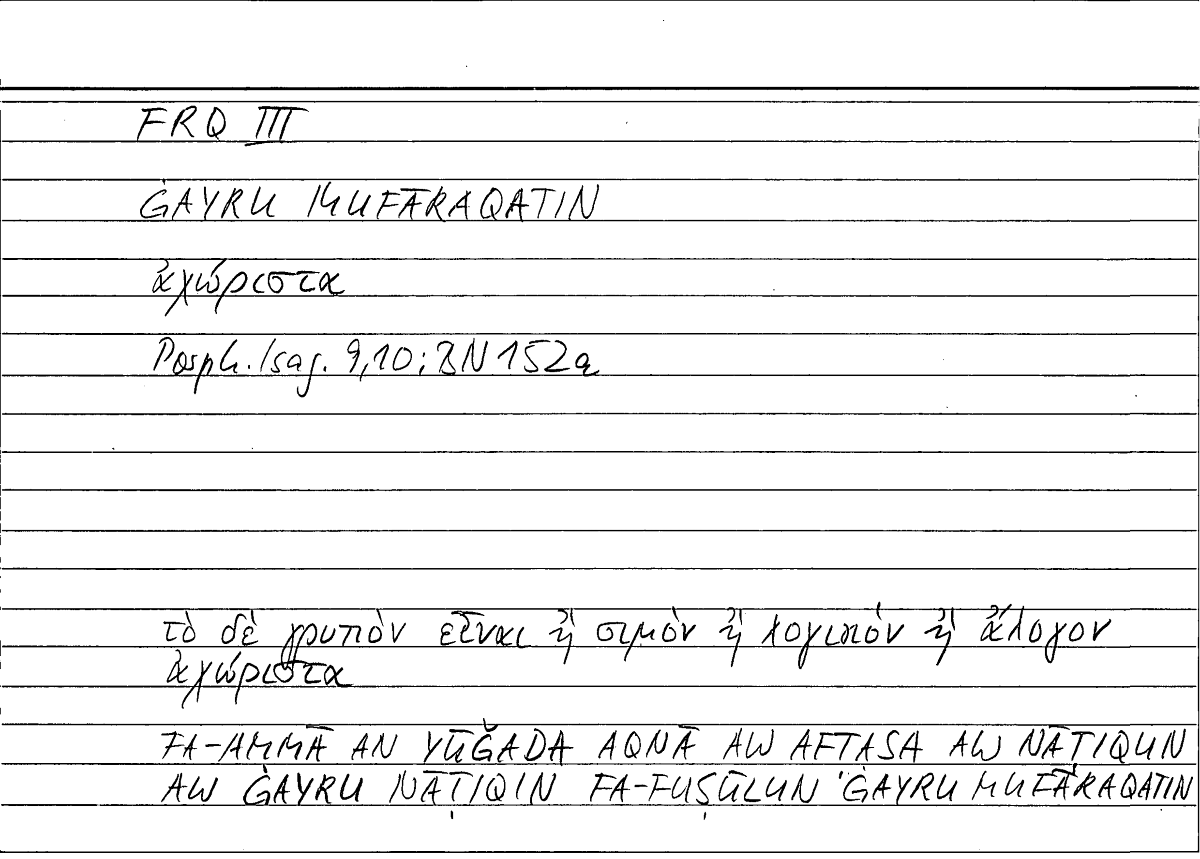 FRQ III
ĠAYRU MUFĀRAQATIN
ἀχώριστα
Porph. Isag. 9,10; BN 152a
τὸ δὲ γρυπὸν εἶναι ἢ σιμὸν ἢ λογικόν ἢ ἄλογον
ἀχώριστα
FA-AMMĀ AN YŪǦADA AQNĀ AW AFṬASA AW NĀṬIQUN
AW ĠAYRU NĀṬIQIN FA-FUṢŪLUN ĠAYRU MUFĀRAQATIN